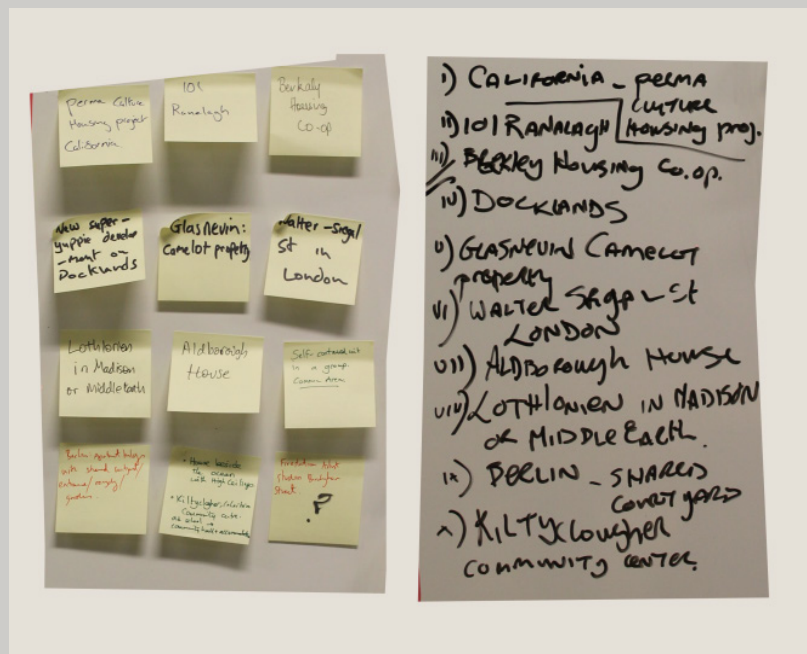 perma culture
Housing project
California
101
Ranalagh
Berkally
Housing
Co-op
New super-
yuppie develop
-ment on
Docklands
Glasnevin:
Camelot property
Walter-Segal
St in
London
Lothlonien
in Madison
or Middleearth
Aldborough
House
Self-contained unit
in a group.
Common Area
Berlin: Apartment
with shared
entrance/
garden.
• House beside
the ocean
with High Ceilings
• Kiltyclogher
Community centre.
old school →
community hall + accommodation
Street.
?
i) CALIFORNIA - PERMA
CULTURE
HOUSING proj.
ii) 101 RANALAGH
iii) BERKLEY HOUSING Co.op.
iv) DOCKLANDS
v) GLASNEVIN CAMELOT
property
vi) WALTER SEGAL St
LONDON
vii) ALDBOROUGH HOUSE
viii) LOTHLONIEN IN MADISON
OR MIDDLE EARTH.
ix) BERLIN - SHARED
COURTYARD
x) KILTYCLOUGHER
COMMUNITY CENTER.